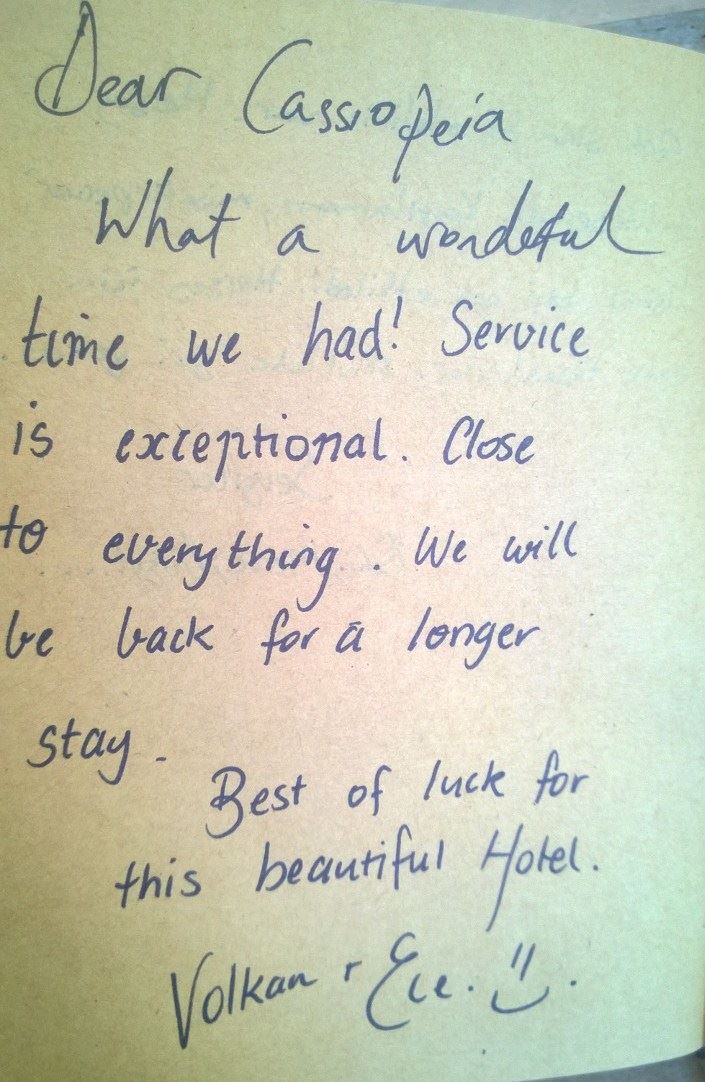 Dear Cassiopeia
What a wondeful
time we had! Service
is exceptional. Close
to everything. We will
be back for a longer
stay.
Best of luck for
this beautiful Hotel.
Volkan + Ece.